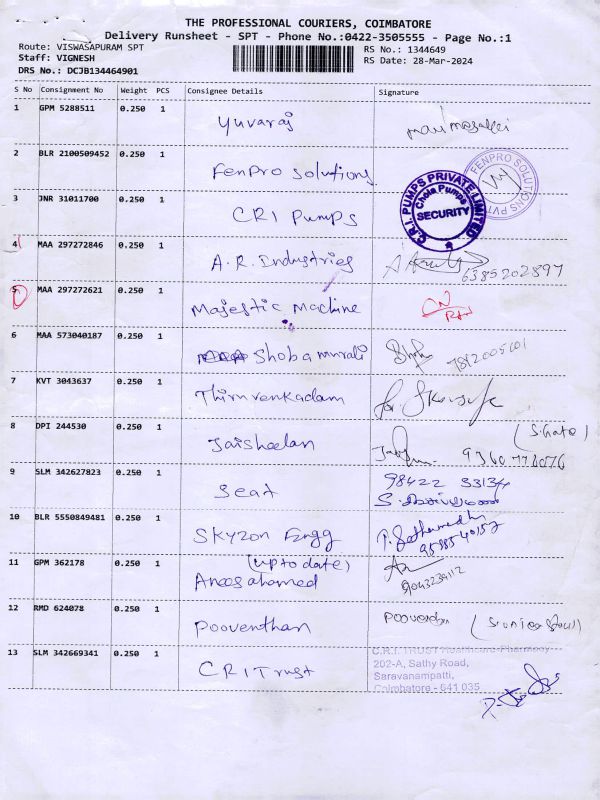 THE PROFESSIONAL COURIERS, COIMBATORE
Delivery Runsheet - SPT - Phone No.:0422-3505555 - Page No.:1
Route: VISWASAPURAM SPT
RS No.: 1344649
Staff: VIGNESH
RS Date: 28-Mar-2024
DRS No.: DCJB134464901
S No Consignment No Weight PCS Consignee Details Signature
1 GPM 5288511 0.250 1 Yuvaraj
2 BLR 2100509452 0.250 1 Fenpro Solutions
FENPRO SOLUTIONS PVT
3 JNR 31011700 0.250 1 CRI Pumps
C.R.I. PUMPS PRIVATE LIMITED
Chola Pumps
SECURITY
4 MAA 297272846 0.250 1 A.R. Industries 6385202897
5 MAA 297272621 0.250 1 Majestic Machine
6 MAA 573040187 0.250 1 Shoba murali
7 KVT 3043637 0.250 1 Thiruvenkadam for
8 DPI 244530 0.250 1 Jaisheelan
9 SLM 342627823 0.250 1 Seat 98422
10 BLR 5550849481 0.250 1 Skyzon Engg
11 GPM 362178 0.250 1 (up to date)
Anees ahamed
12 RMD 624078 0.250 1 Pooventhan
13 SLM 342669341 0.250 1 CRI Trust
C.R.I. TRUST Healthcare Pharmacy
202-A, Sathy Road,
Saravanampatti,
Coimbatore - 641 035